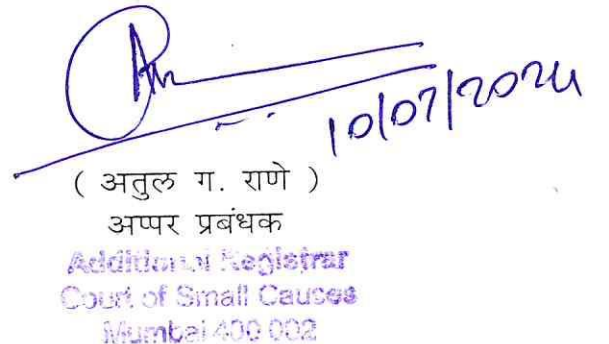 10/07/2024
( अतुल ग. राणे )
अप्पर प्रबंधक
Additional Registrar
Court of Small Causes
Mumbai 400 002